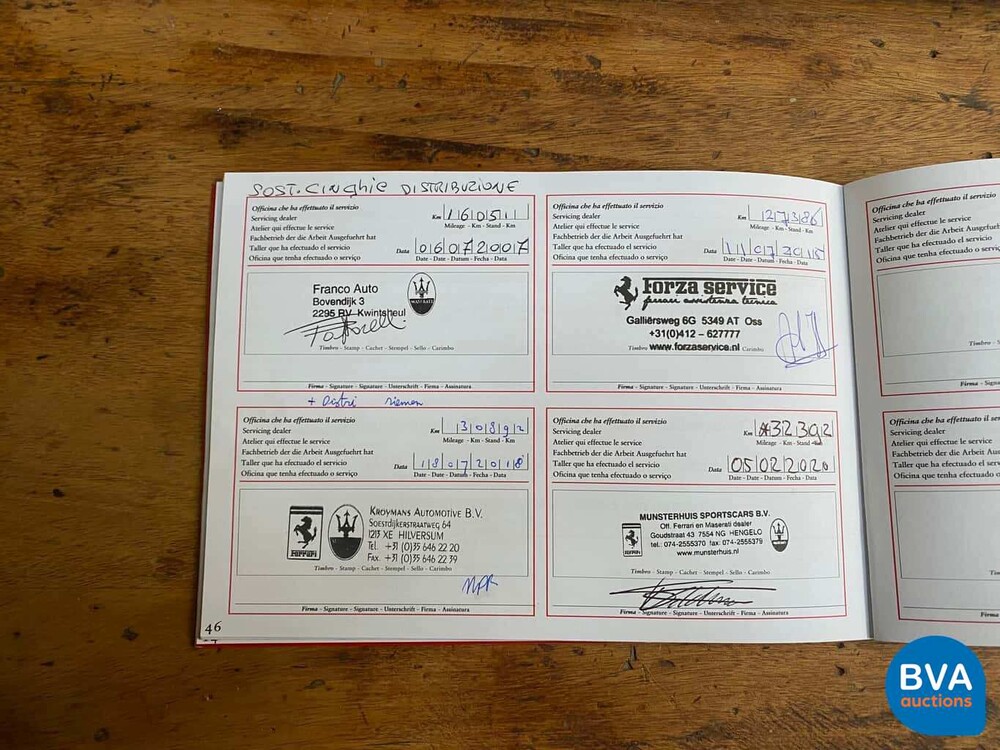 SOST. CINGHIE DISTRIBUZIONE
Officina che ha effettuato il servizio
Servicing dealer
Atelier qui effectue le service
Fachbetrieb der die Arbeit Ausgefuehrt hat
Taller que ha efectuado el servicio
Oficina que tenha efectuado o serviço
Km 16051
Mileage - Km - Stand - Km
Data 06072007
Date - Date - Datum - Fecha - Data
Franco Auto
Bovendijk 3
2295 RV Kwintsheul
MASERATI
Timbro - Stamp - Cachet - Stempel - Sello - Carimbo
Firma - Signature - Signature - Unterschrift - Firma - Assinatura
Officina che ha effettuato il servizio
Servicing dealer
Atelier qui effectue le service
Fachbetrieb der die Arbeit Ausgefuehrt hat
Taller que ha efectuado el servicio
Oficina que tenha efectuado o serviço
Km 27386
Mileage - Km - Stand - Km
Data 11072015
Date - Date - Datum - Fecha - Data
forza service
ferrari assistenza tecnica
Galliërsweg 6G 5349 AT Oss
+31(0)412 - 627777
Timbro www.forzaservice.nl Carimbo
Firma - Signature - Signature - Unterschrift - Firma - Assinatura
+ Distri riemen
Officina che ha effettuato il servizio
Servicing dealer
Atelier qui effectue le service
Fachbetrieb der die Arbeit Ausgefuehrt hat
Taller que ha efectuado el servicio
Oficina que tenha efectuado o serviço
Km 30892
Mileage - Km - Stand - Km
Data 18072018
Date - Date - Datum - Fecha - Data
Ferrari
Kroymans Automotive B.V.
Soestdijkerstraatweg 64
1213 XE HILVERSUM
Tel. +31 (0)35 646 22 20
Fax. +31 (0)35 646 22 39
Timbro - Stamp - Cachet - Stempel - Sello - Carimbo
Firma - Signature - Signature - Unterschrift - Firma - Assinatura
Officina che ha effettuato il servizio
Servicing dealer
Atelier qui effectue le service
Fachbetrieb der die Arbeit Ausgefuehrt hat
Taller que ha efectuado el servicio
Oficina que tenha efectuado o serviço
Km 32392
Mileage - Km - Stand - Km
Data 05022020
Date - Date - Datum - Fecha - Data
MUNSTERHUIS SPORTSCARS B.V.
Off. Ferrari en Maserati dealer
Goudstraat 43 7554 NG HENGELO
tel.: 074-2555370 fax: 074-2555379
www.munsterhuis.nl
Ferrari
Timbro - Stamp - Cachet - Stempel - Sello - Carimbo
Firma - Signature - Signature - Unterschrift - Firma - Assinatura
46
Officina che ha effettuato il
Servicing dealer
Atelier qui effectue le service
Fachbetrieb der die Arbeit
Taller que ha efectuado el servicio
Oficina que tenha efectuado o
Timbro
Firma
Officina che ha effettuato il
Servicing dealer
Atelier qui effectue le service
Fachbetrieb der die Arbeit
Taller que ha efectuado el
Oficina que tenha efectuado o
Firma
BVA
auctions